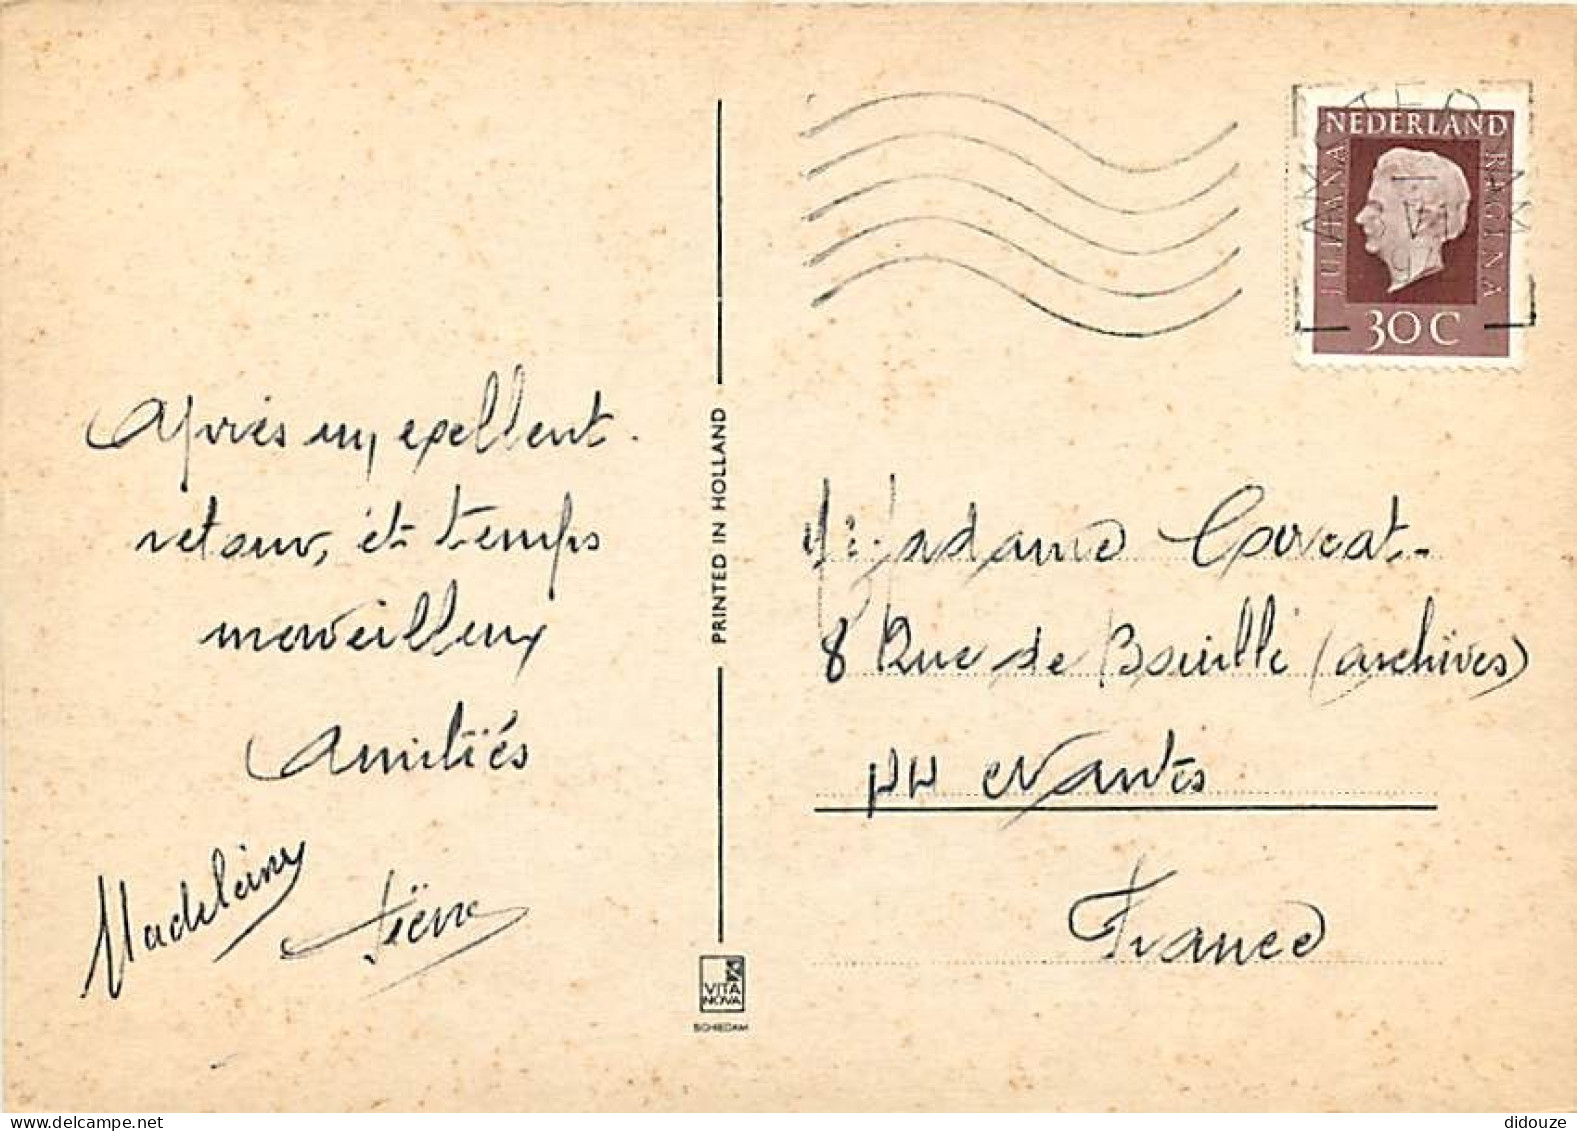 Après un expellent
retour, et temps
merveilleux
Amitiés
Madeleine
Pierre
PRINTED IN HOLLAND
VITA
NOVA
SCHIEDAM
NEDERLAND
JULIANA
REGINA
30C
Madame
8 Rue de Bouillé (archives)
44 Nantes
France
didouze